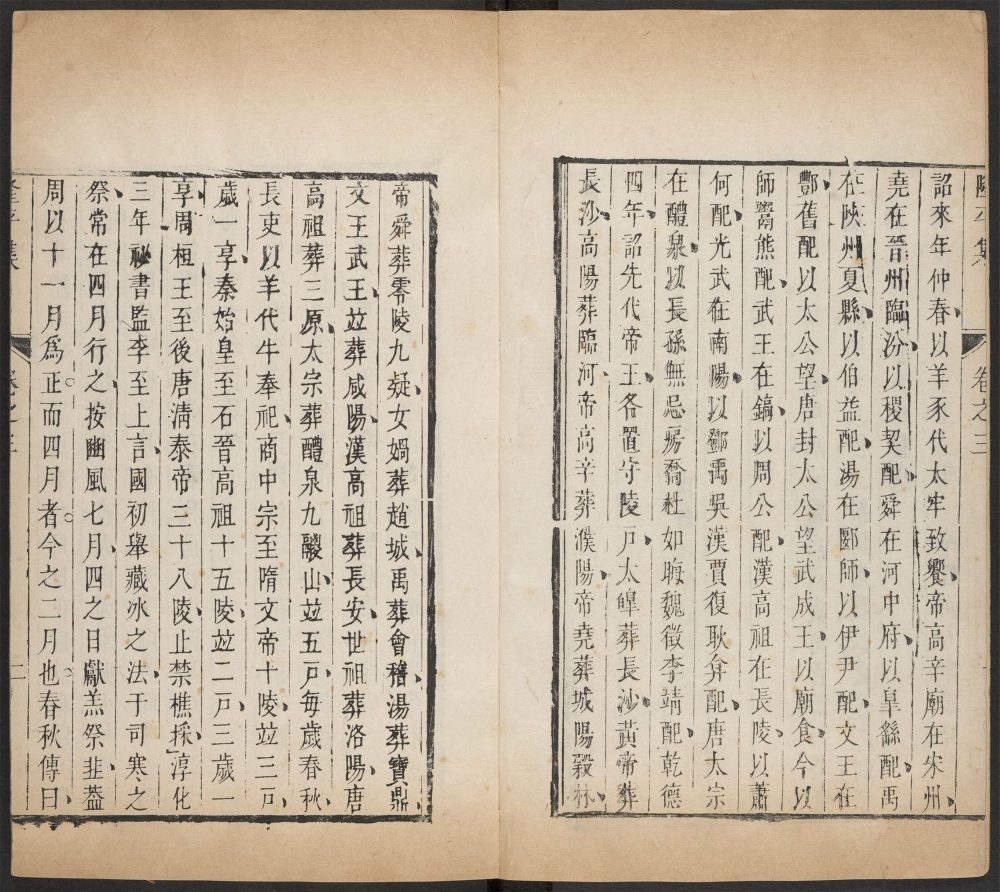 隆平集 卷之三
詔來年仲春以羊豕代太牢致饗帝高辛廟在宋州
堯在晉州臨汾以稷契配舜在河中府以皐繇配禹
在陜州夏縣以伯益配湯在郾師以伊尹配文王在
酆舊配以太公望唐封太公望武成王以廟食今以
師鬻熊配武王在鎬以周公配漢高祖在長陵以蕭
何配光武在南陽以鄧禹吳漢賈復耿弇配唐太宗
在醴泉以長孫無忌房喬杜如晦魏徵李靖配乾德
四年詔先代帝王各置守陵戸太皥葬長沙黃帝葬
長沙高陽葬臨河帝高辛葬濮陽帝堯葬城陽穀林
帝舜葬零陵九疑女媧葬趙城禹葬會稽湯葬寶鼎
文王武王竝葬咸陽漢高祖葬長安世祖葬洛陽唐
高祖葬三原太宗葬醴泉九嵕山竝五戸每歲春秋
長吏以羊代牛奉祀商中宗至隋文帝十陵竝三戸
歲一享秦始皇至石晉高祖十五陵竝二戸三歲一
享周桓王至後唐淸泰帝三十八陵止禁樵採淳化
三年祕書監李至上言國初舉藏冰之法于司寒之
祭常在四月行之按豳風七月四之日獻羔祭韭葢
周以十一月爲正而四月者今之二月也春秋傳曰
隆平集 卷之三 二